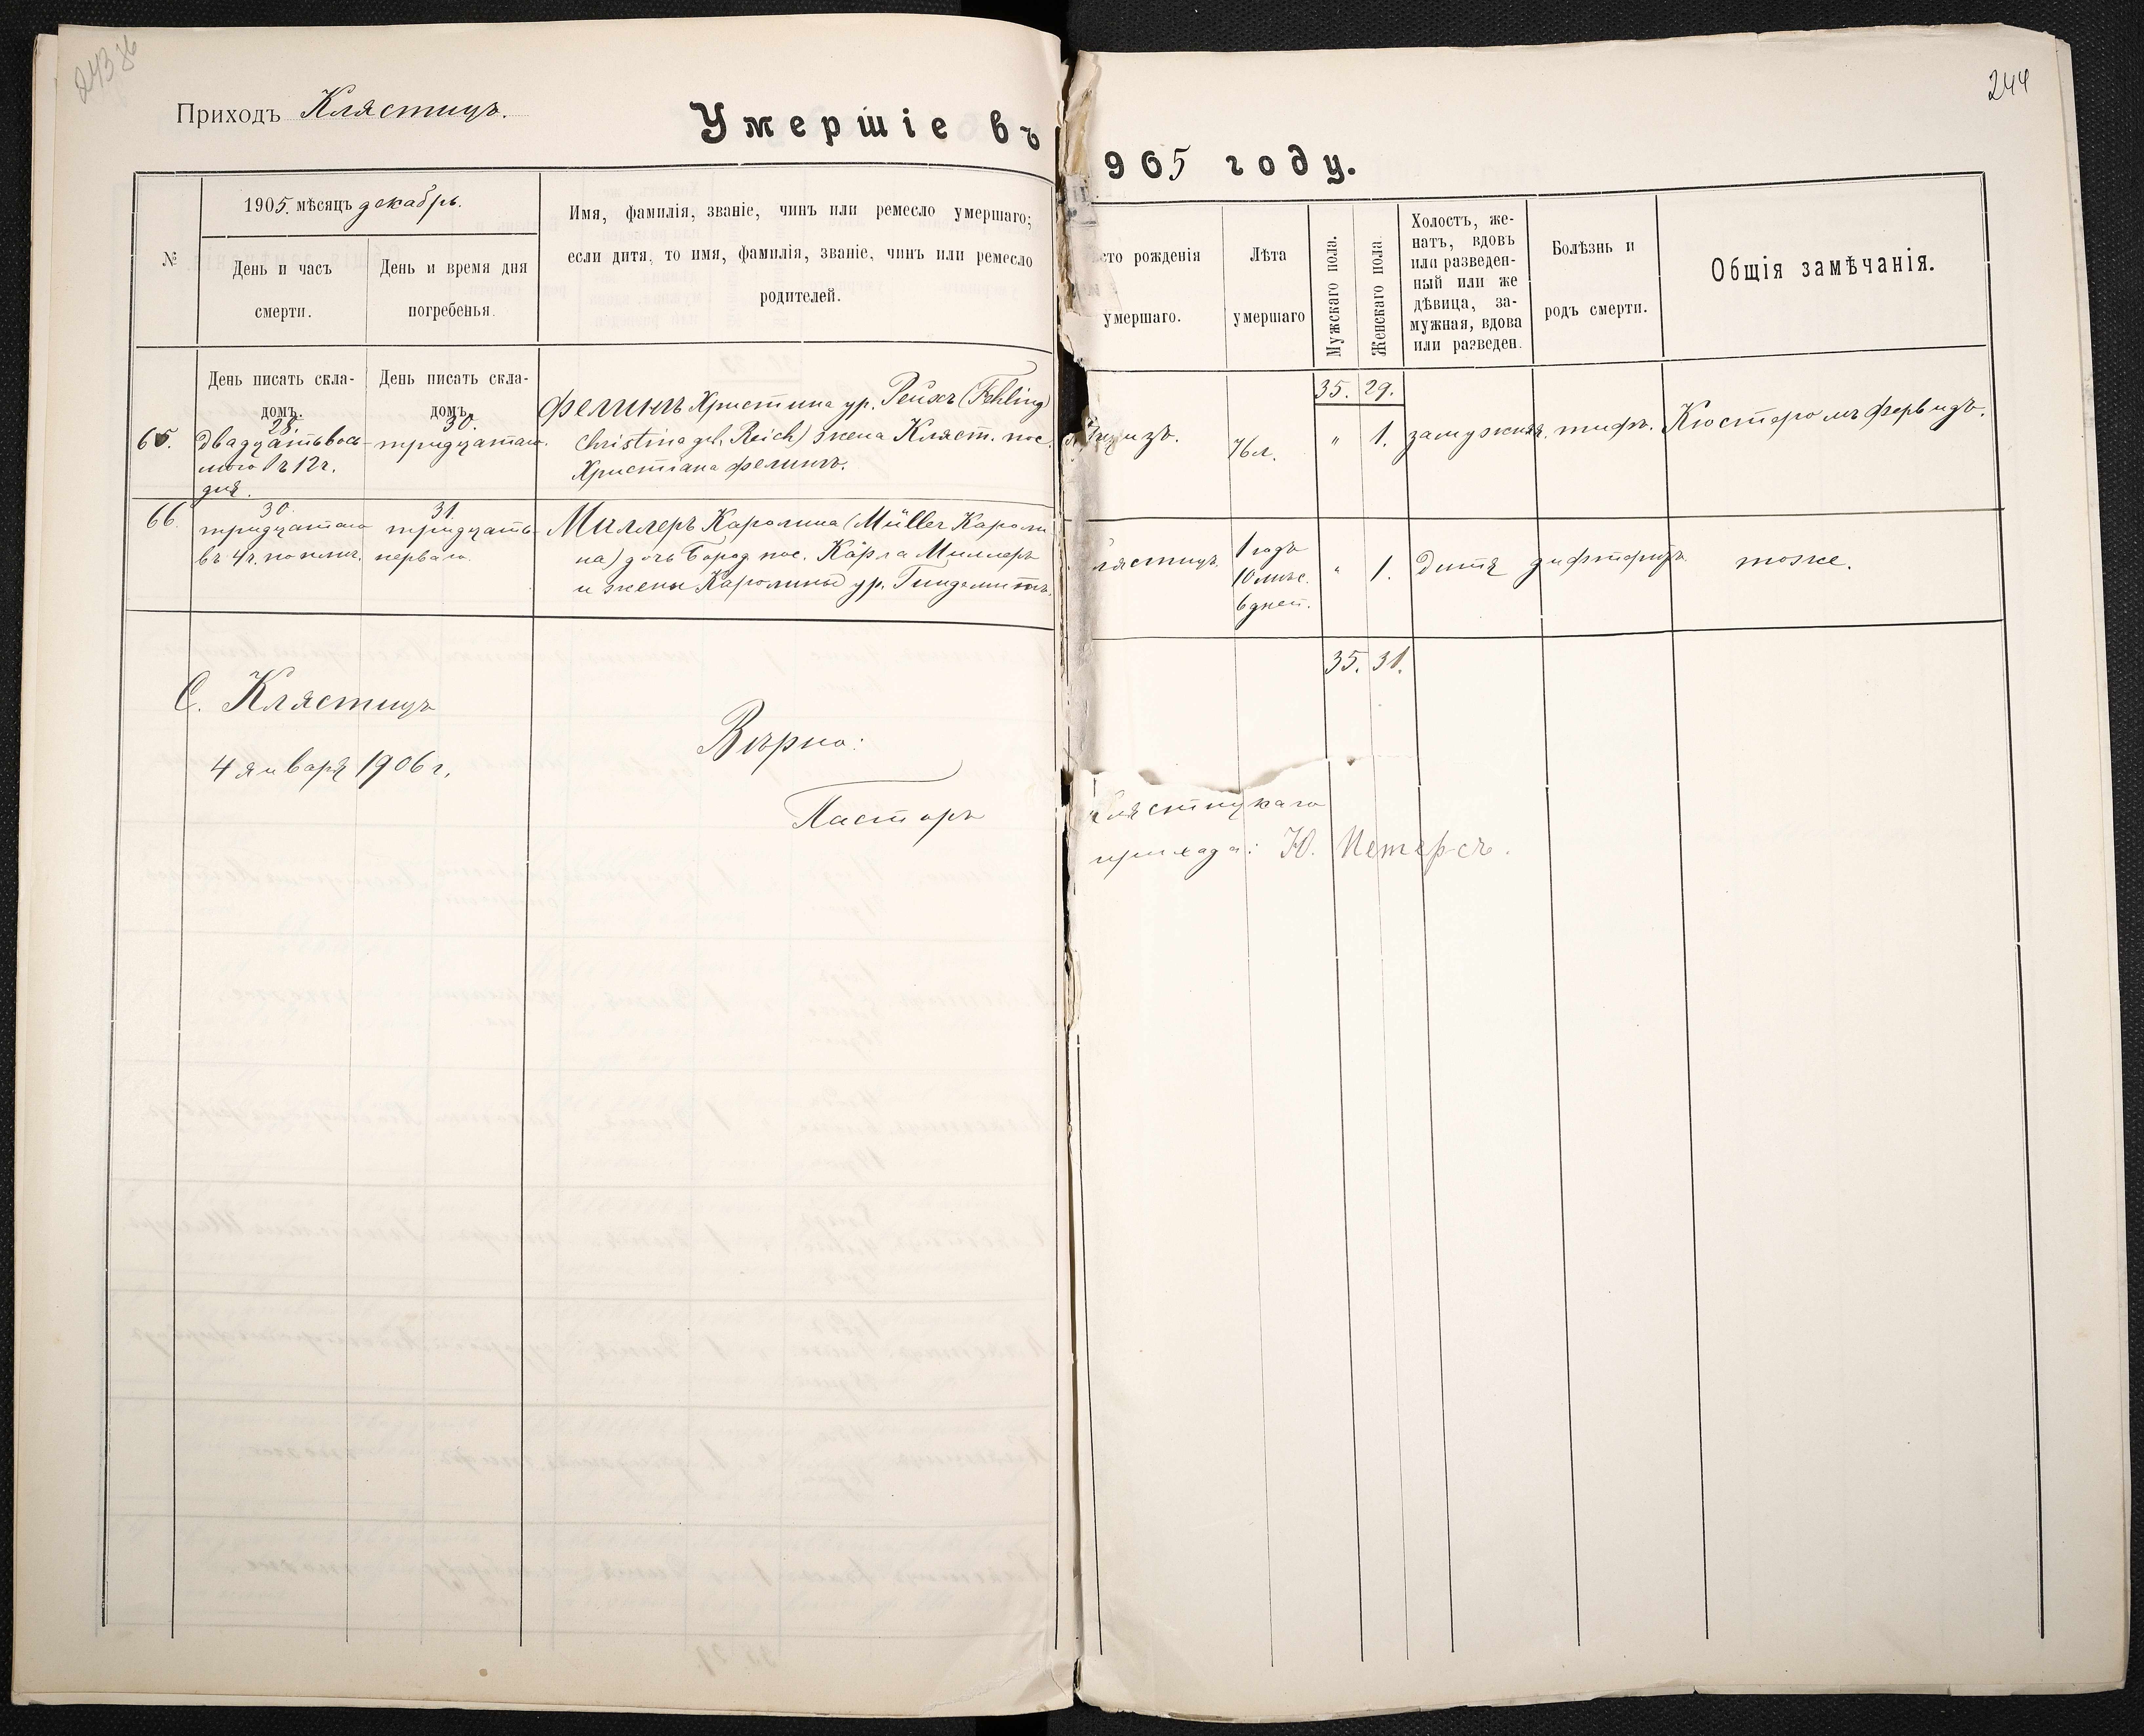 243 об
Приходъ Клястицъ.
Умершіе въ
№
1905. мѣсяцъ декабрь.
День и часъ
смерти.
День и время дня
погребенья.
Имя, фамилія, званіе, чинъ или ремесло умершаго;
если дитя, то имя, фамилія, званіе, чинъ или ремесло
родителей.
День писать скла-
домъ.
День писать скла-
домъ.
65.
28.
двадцать вось-
мого въ 12 ч.
дня.
30.
тридцатаго.
Фелингъ Христина ур. Рейхъ (Fehling
Christina geb. Reich) жена Кляст. пос.
Христіана Фелингъ.
66.
30.
тридцатаго
въ 4 ч. по полн.
31.
тридцать
перваго.
Миллеръ Каролина (Müller Кароли
на) дочь Бород. пос. Карла Миллеръ
и жены Каролины ур. Гинделитъ.
С. Клястицъ
4 января 1906 г.
Вѣрно:
Пасторъ
244
905 году.
сто рожденія
умершаго.
Лѣта
умершаго
Мужскаго пола.
Женскаго пола
Холостъ, же-
натъ, вдовъ
или разведен-
ный или же
дѣвица, за-
мужная, вдова
или разведен.
Болѣзнь и
родъ смерти.
Общія замѣчанія.
35. 29.
76 л.
" 1.
замужняя.
тифъ.
Кюстеромъ Фервидъ.
лястицъ.
1 годъ
10 мѣс.
6 дней.
" 1.
Дитя
дифтеритъ.
тоже.
35. 31.
Клястицкаго
прихода: Ю. Петерсъ.